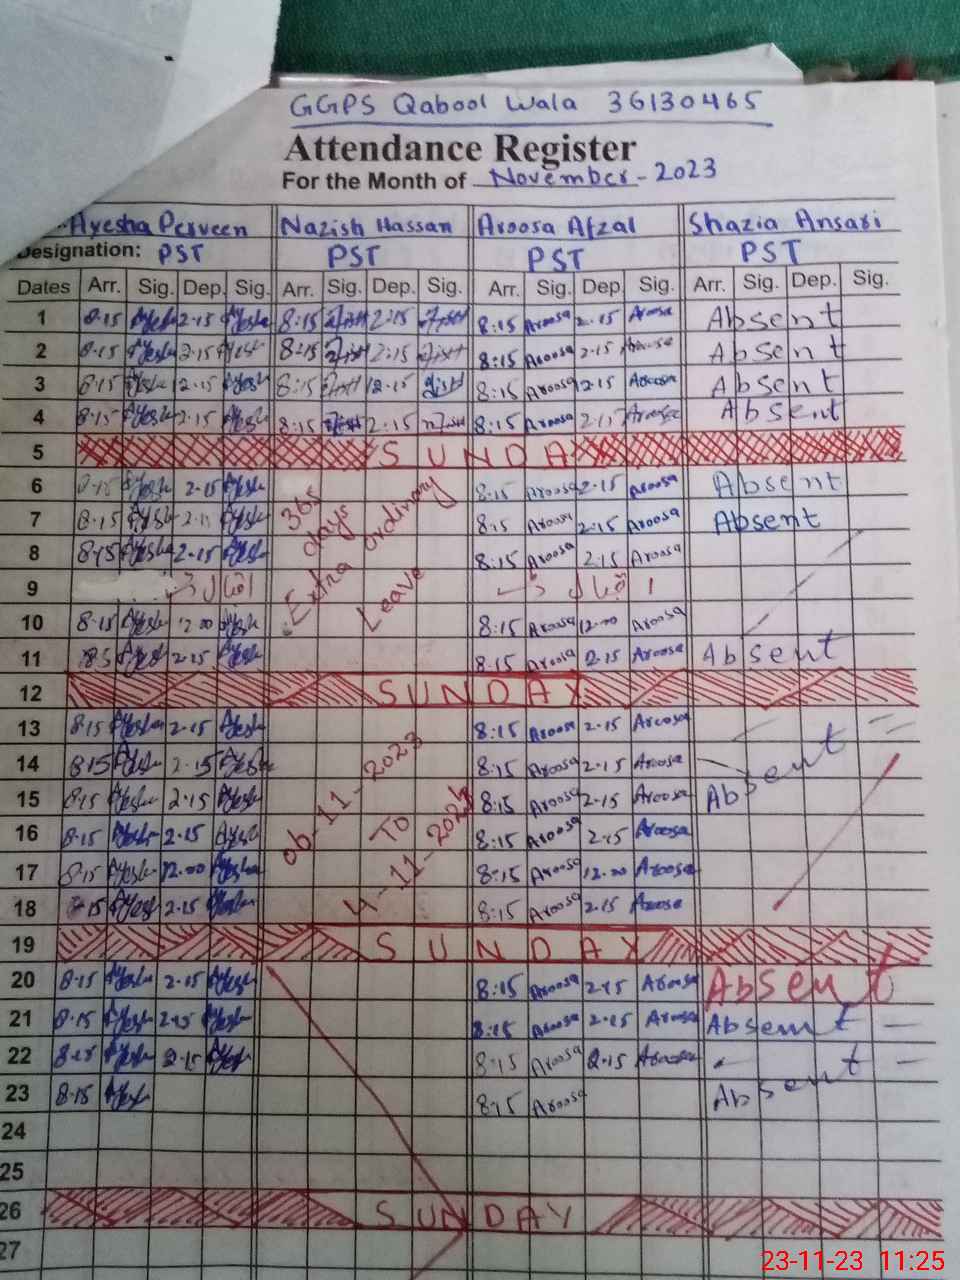 GGPS Qabool Wala 36130465
Attendance Register
For the Month of November - 2023
Ayesha Perveen Nazish Hassan Aroosa Afzal Shazia Ansari
Designation: PST PST PST PST
Dates Arr. Sig. Dep. Sig. Arr. Sig. Dep. Sig. Arr. Sig. Dep Sig. Arr. Sig. Dep. Sig.
1 8:15 Ayesha 2:15 Ayesha 8:15 2:15 8:15 Aroosa 2:15 Aroosa Absent
2 8:15 Ayesha 2:15 Ayesha 8:15 2:15 8:15 Aroosa 2:15 Aroosa Absent
3 8:15 Ayesha 2:15 Ayesha 8:15 2:15 8:15 Aroosa 2:15 Aroosa Absent
4 8:15 Ayesha 2:15 Ayesha 8:15 2:15 8:15 Aroosa 2:15 Aroosa Absent
5 SUNDAY
6 8:15 Ayesha 2:15 Ayesha 365 8:15 Aroosa 2:15 Aroosa Absent
7 8:15 Ayesha 2:15 Ayesha days ordinary 8:15 Aroosa 2:15 Aroosa Absent
8 8:15 Ayesha 2:15 Ayesha 8:15 Aroosa 2:15 Aroosa
9 Extra Leave
10 8:15 Ayesha 12:00 Ayesha 8:15 Aroosa 12:00 Aroosa
11 8:15 Ayesha 2:15 Ayesha 8:15 Aroosa 2:15 Aroosa Absent
12 SUNDAY
13 8:15 Ayesha 2:15 Ayesha 8:15 Aroosa 2:15 Aroosa
14 8:15 Ayesha 2:15 Ayesha 8:15 Aroosa 2:15 Aroosa
15 8:15 Ayesha 2:15 Ayesha 06-11-2023 8:15 Aroosa 2:15 Aroosa Absent
16 8:15 Ayesha 2:15 Ayesha TO 8:15 Aroosa 2:15 Aroosa
17 8:15 Ayesha 12:00 Ayesha 8:15 Aroosa 12:00 Aroosa
18 8:15 Ayesha 2:15 Ayesha 8:15 Aroosa 2:15 Aroosa
19 SUNDAY
20 8:15 Ayesha 2:15 Ayesha 8:15 Aroosa 2:15 Aroosa Absent
21 8:15 Ayesha 2:15 Ayesha 8:15 Aroosa 2:15 Aroosa Absent
22 8:15 Ayesha 2:15 Ayesha 8:15 Aroosa 2:15 Aroosa
23 8:15 Ayesha 8:15 Aroosa Absent
24
25
26 SUNDAY
27
23-11-23 11:25